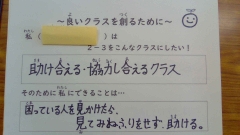 ～良いクラスを創るために～
私（　　　）は
2-3をこんなクラスにしたい！
助け合える・協力し合えるクラス
そのために私にできることは…
困っている人を見かけたら、
見てみぬふりをせず、助ける。